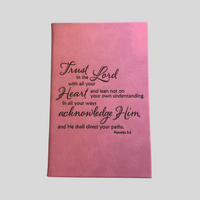 Trust in the Lord
with all your
Heart and lean not on
your own understanding.
In all your ways
acknowledge Him,
and He shall direct your paths.
Proverbs 3:5